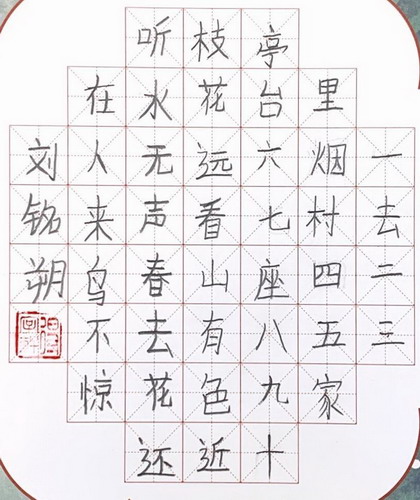 一去二三
里烟村四五家
亭台六七座八九十
枝花远看山有色近
听水无声春去花还
在人来鸟不惊
刘铭朔